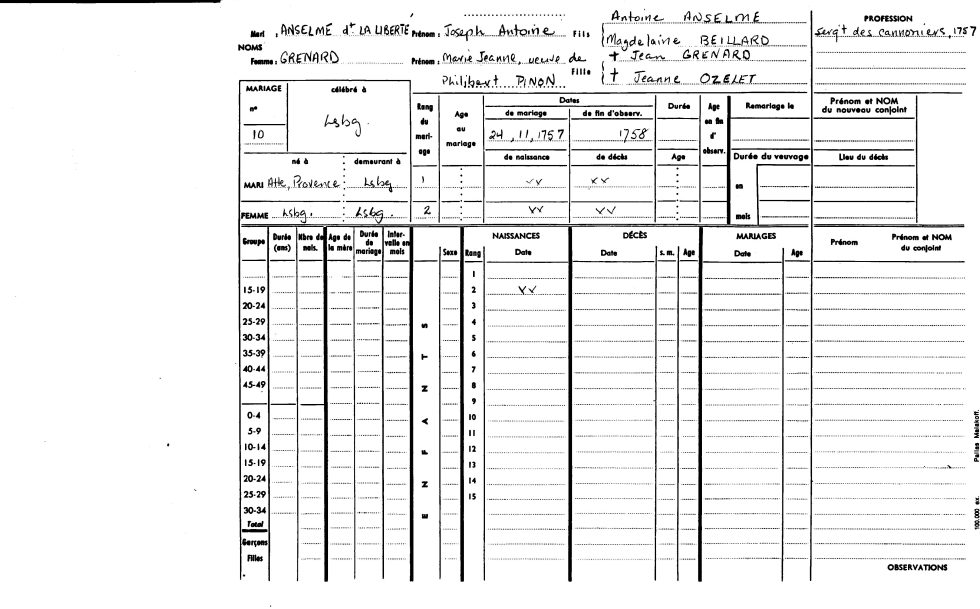 Antoine ANSELME
PROFESSION
Mari : ANSELME dt LA LIBERTÉ Prénom : Joseph Antoine Fils
sergt des cannoniers, 1757
NOMS
Magdelaine BEILLARD
Femme : GRENARD Prénom : Marie Jeanne, veuve de
+ Jean GRENARD
Philibert PINON Fille
+ Jeanne OZELET
MARIAGE célébré à Rang du mariage Age au mariage Dates Durée Age en fin d'observ. Remariage le Prénom et NOM du nouveau conjoint
n° de mariage de fin d'observ.
10 Lsbg. 24, 11, 1757 1758
né à demeurant à de naissance de décès Age Durée du veuvage Lieu du décès
MARI Atte, Provence Lsbg 1 vv xx en
FEMME Lsbg. Lsbg. 2 vv vv mois
Groupe Durée (ans) Nbre de nais. Age de la mère Durée de mariage Intervalle en mois Sexe Rang NAISSANCES Date DÉCÈS Date s. m. Age MARIAGES Date Age Prénom Prénom et NOM du conjoint
ENFANTS
1
15-19 2 vv
20-24 3
25-29 4
30-34 5
35-39 6
40-44 7
45-49 8
9
0-4 10
5-9 11
10-14 12
15-19 13
20-24 14
25-29 15
30-34
Total
Garçons
Filles
OBSERVATIONS
100.000 ex.